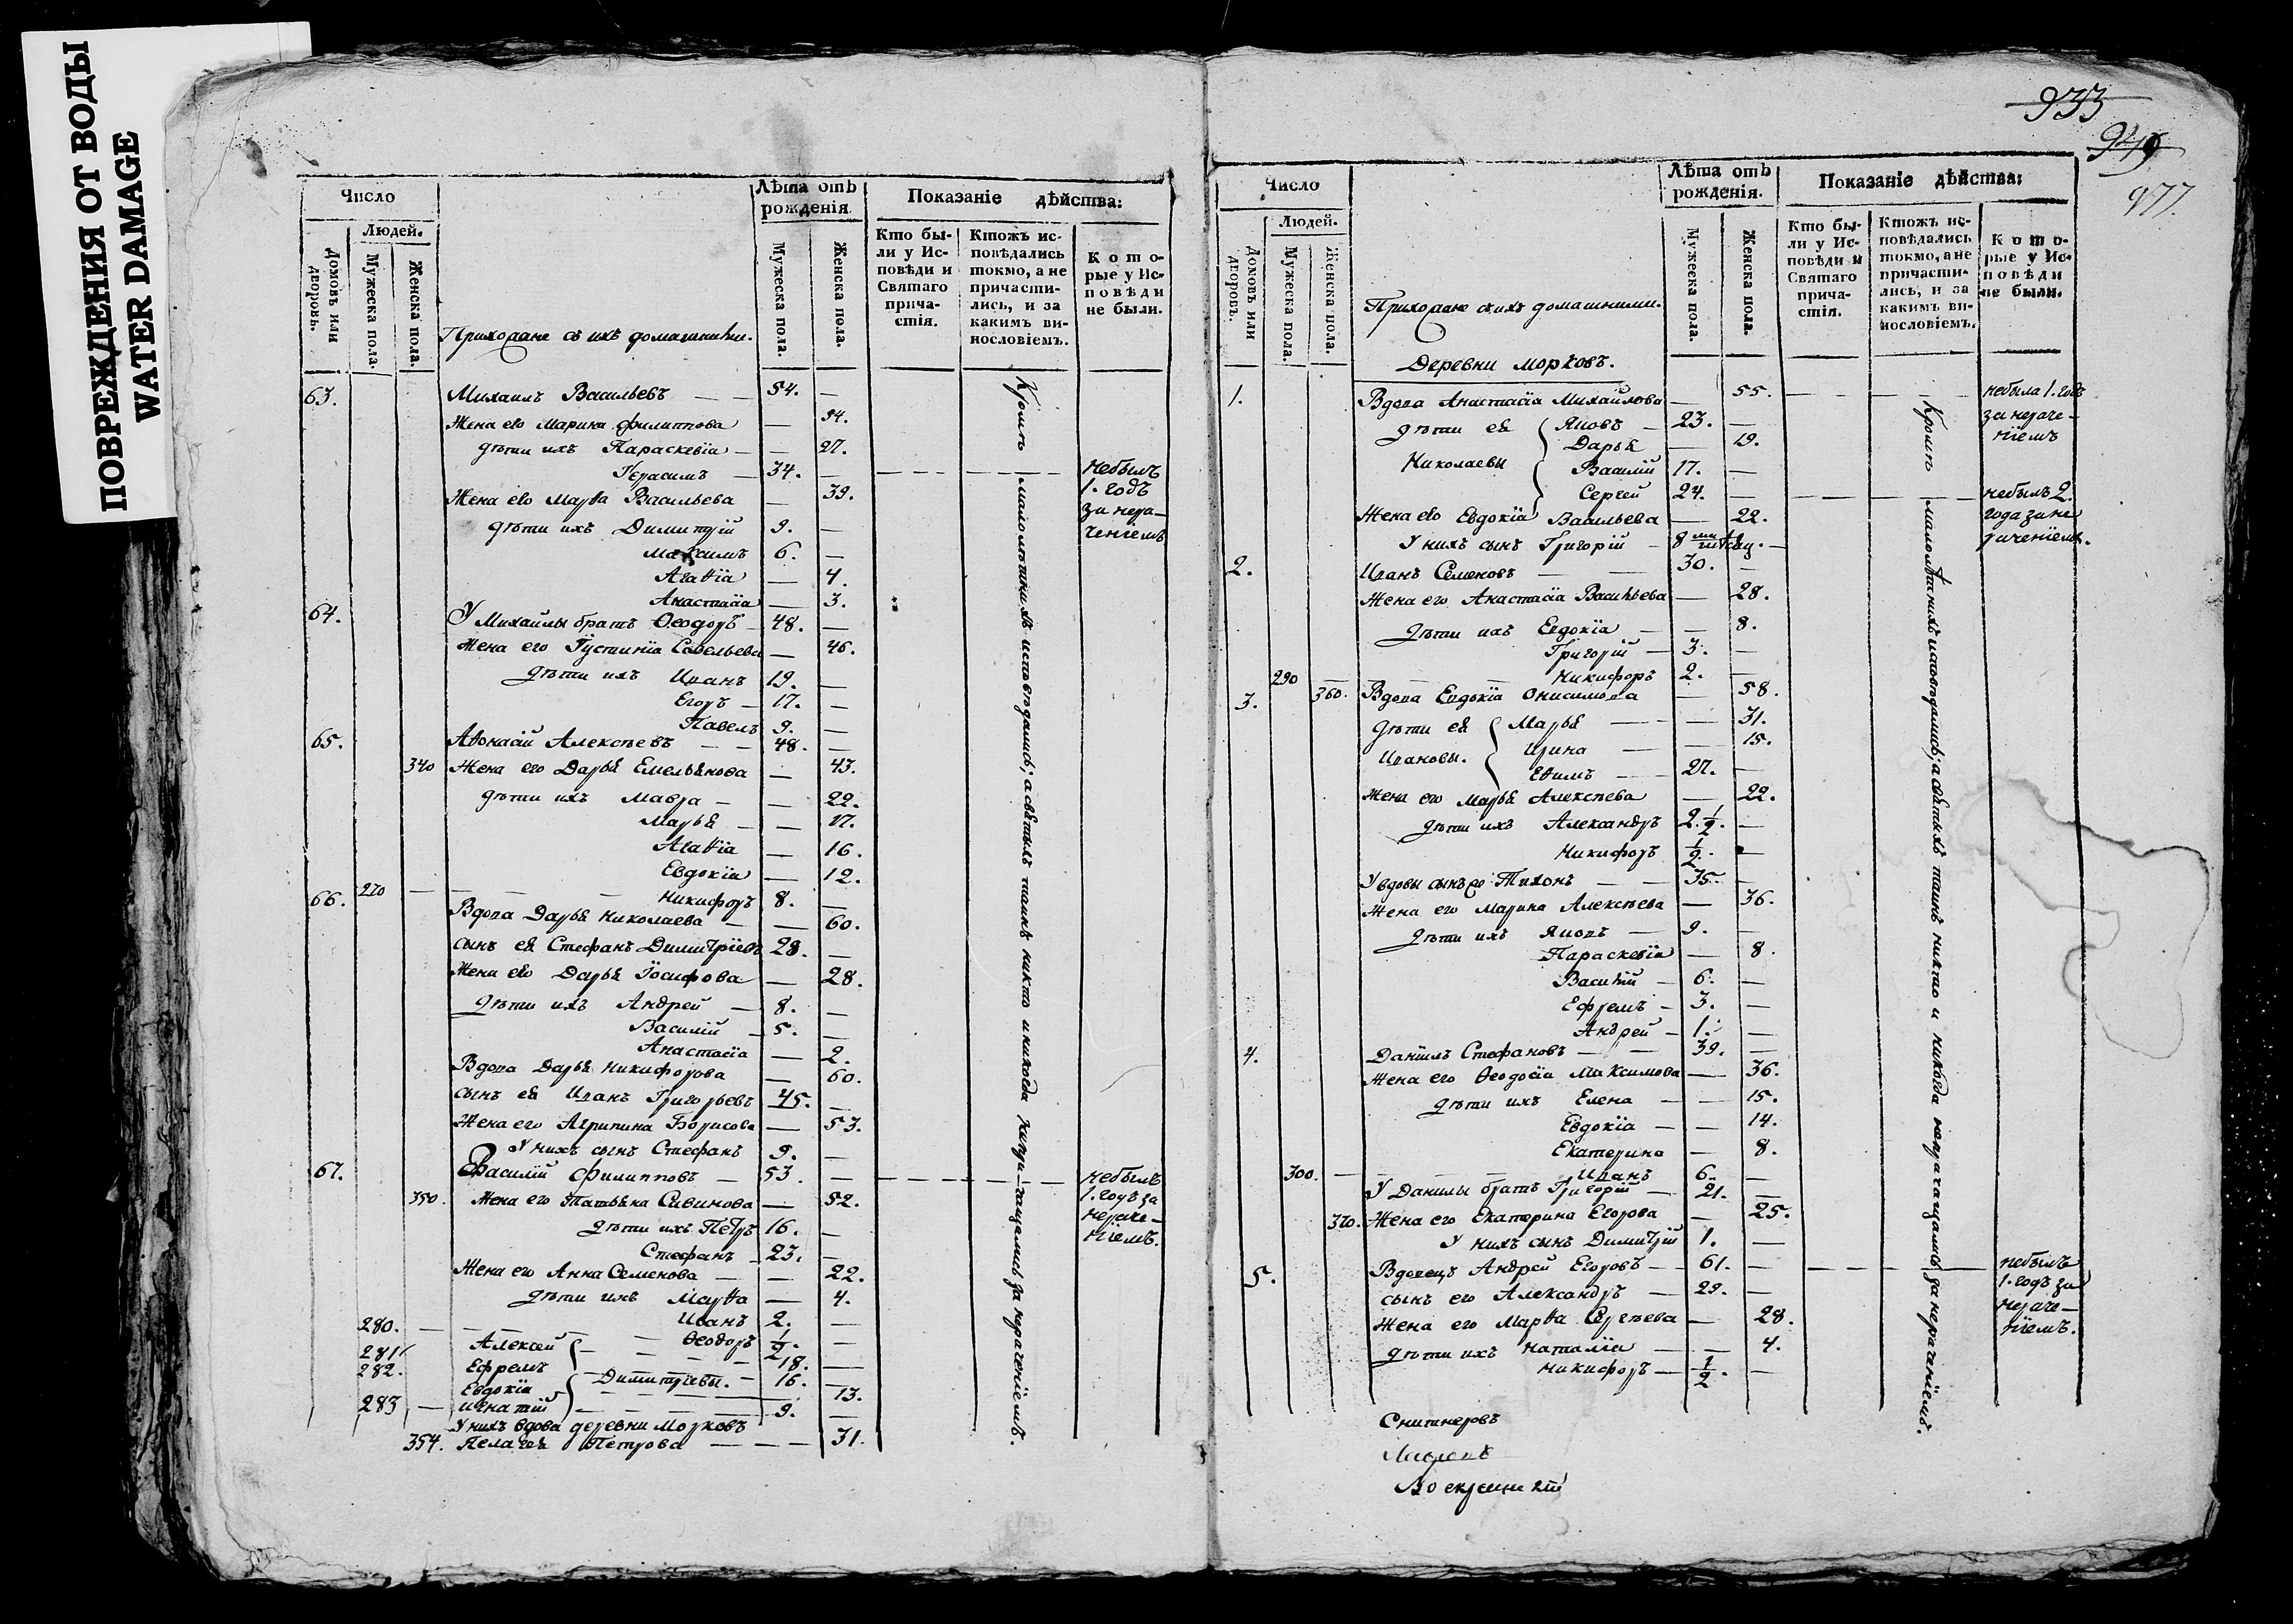 ПОВРЕЖДЕНИЯ ОТ ВОДЫ
WATER DAMAGE
Число
Лѣта отъ рожденія
Показаніе дѣйства:
Людей.
Домовъ или дворовъ.
Мужеска пола.
Женска пола.
Прихожане съ ихъ домашними.
Мужеска пола.
Женска пола.
Кто бы-
ли у Ис-
повѣди и
Святаго
прича-
стія.
Ктожъ ис-
повѣдались
токмо, а не
причасти-
лись, и за
какимъ ви-
нословіемъ.
Кото-
рые у Ис-
повѣди
не были.
63. Михаилъ Васильевъ — — 54. —
Жена его Марина Филиппова — 54.
дѣти ихъ Параскевіа — — 27.
Герасимъ — 34. — небылъ
1. годъ
за нера-
ченіемъ
Жена его Марѳа Васильева — 39.
дѣти ихъ Димитрій 9. —
Максимъ 6. —
Агаѳіа — 4.
Анастасіа — 3.
64. У Михайлы братъ Ѳеодоръ — 48. —
Жена его Іустиніа Савельева — 46.
дѣти ихъ Иванъ 19. —
Егоръ — 17. —
Павелъ 9. —
65. Аѳонасій Алексѣевъ — — 48. —
340 Жена его Дарья Емельянова — 43.
дѣти ихъ Мавра — — 22.
Марья — — 17.
Агаѳіа — 16.
Евдокіа — 12.
270 — — — — Никифоръ 8. —
66. Вдова Дарья Николаева — — 60.
сынъ ея Стефанъ Димитріевъ 28. —
Жена его Дарья Іосифова — 28.
дѣти ихъ Андрей — 8. —
Василій — 5. —
Анастасіа — 2.
Вдова Дарья Никифорова — 60.
сынъ ея Иванъ Григорьевъ 45. —
Жена его Агрипина Борисова — 53.
У нихъ сынъ Стефанъ 9. —
67. Василій Филипповъ — 53. — небылъ
1. годъ за
нераче-
ніемъ.
350. Жена его Татьяна Савинова — 52.
дѣти ихъ Петръ 16. —
Стефанъ — 23. —
Жена его Анна Семенова — — 22.
дѣти ихъ Марѳа — 4.
280. — — — Иванъ 2. —
Ѳеодоръ 1/2. —
281 Алексей — 18. —
282. Ефремъ — Димитріевы. — 16. —
Евдокіа — 13.
283 — Игнатій — 9. —
У нихъ вдова деревни Морковъ
354. Пелагея Петрова — — — 31.
Кромѣ малолѣтнихъ исповѣдались; а святыхъ таинъ никто и никогда непри-чащались за нераченіемъ.
933
949
977.
Число
Лѣта отъ рожденія.
Показаніе дѣйства:
Людей.
Домовъ или дворовъ.
Мужеска пола.
Женска пола.
Прихожане съ ихъ домашними.
Мужеска пола.
Женска пола.
Кто бы-
ли у Ис-
повѣди и
Святаго
прича-
стія.
Ктожъ ис-
повѣдались
токмо, а не
причасти-
лись, и за
какимъ ви-
нословіемъ.
Кото-
рые у Ис-
повѣди
не были.
Деревни Морковъ.
1. Вдова Анастасіа Михайлова — 55. — небыла 1. годъ
за нераче-
ніемъ
дѣти ея Яковъ — 23. —
Дарья — 19.
Николаевы Василій 17. —
Сергей 24. — небылъ 2.
года за не
раченіемъ.
Жена его Евдокіа Васильева — 22.
У нихъ сынъ Григорій — 8 ми мѣсяц. —
2. Иванъ Семеновъ — — 30. —
Жена его Анастасіа Васильева — 28.
дѣти ихъ Евдокіа — — 8.
Григорій — 3. —
290 — — — Никифоръ 2. —
3. 360. Вдова Евдокіа Онисимова — 58.
дѣти ея Марья — — 31.
Ивановы. Ирина — — 15.
Ефимъ — 27. —
Жена его Марья Алексѣева — 22.
дѣти ихъ Александръ 2. 1/2. —
Никифоръ 1/2. —
У вдовы сынъ Тихонъ — — 35. —
Жена его Марина Алексѣева — 36.
дѣти ихъ Яковъ — 9. —
Параскевіа — 8.
Василій — 6. —
Ефремъ — 3. —
Андрей — 1. —
4. Даніилъ Стефановъ — — 39. —
Жена его Ѳеодосіа Максимова — 36.
дѣти ихъ Елена — — 15.
Евдокіа — — 14.
Екатерина — 8.
300. — — — Иванъ 6. —
У Данилы братъ Григорій — 21. —
370. Жена его Екатерина Егорова — 25.
У нихъ сынъ Димитрій 1. —
5. Вдовецъ Андрей Егоровъ — 61. — небылъ
1. годъ за
нераче-
ніемъ.
сынъ его Александръ — 29. —
Жена его Марѳа Сергѣева — 28.
дѣти ихъ Наталіа — — 4.
Никифоръ — 1/2. —
Кромѣ малолѣтнихъ исповѣдались; а святыхъ таинъ никто и никогда непричащались за нераченіемъ.